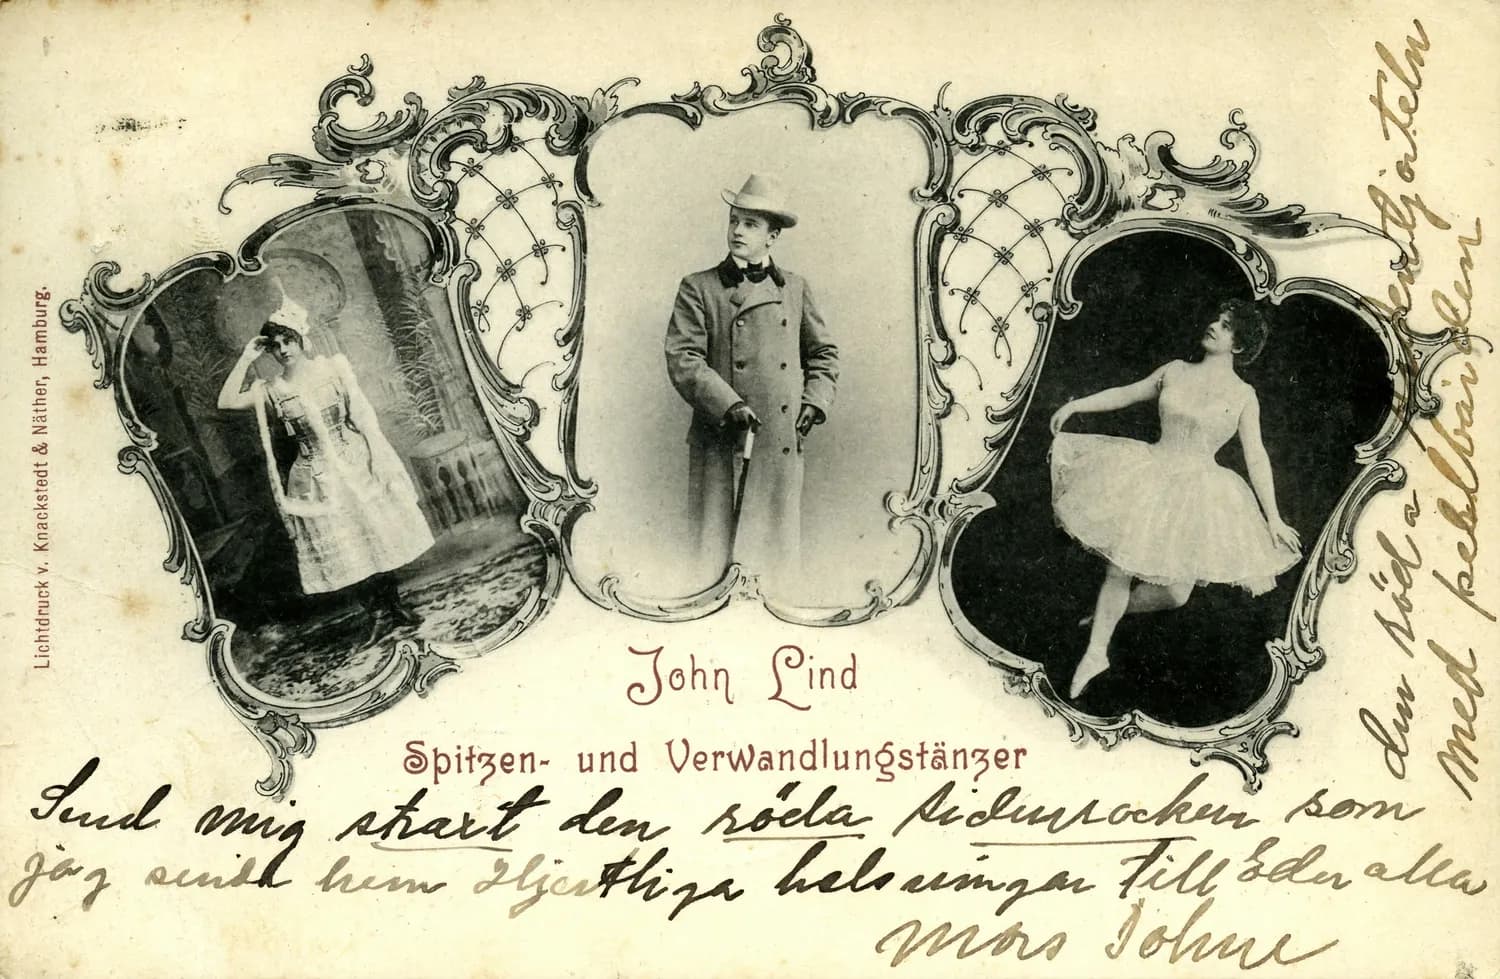 Lichtdruck v. Knackstedt & Näther, Hamburg.
John Lind
Spitzen- und Verwandlungstänzer
Send mig straxt den röda sidenrocken som
jag sände hem Hjertliga helsningar till Eder alla
Mors Johne
den röda
med pelsbärden